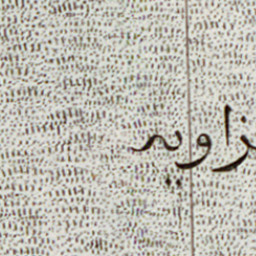 زاويه